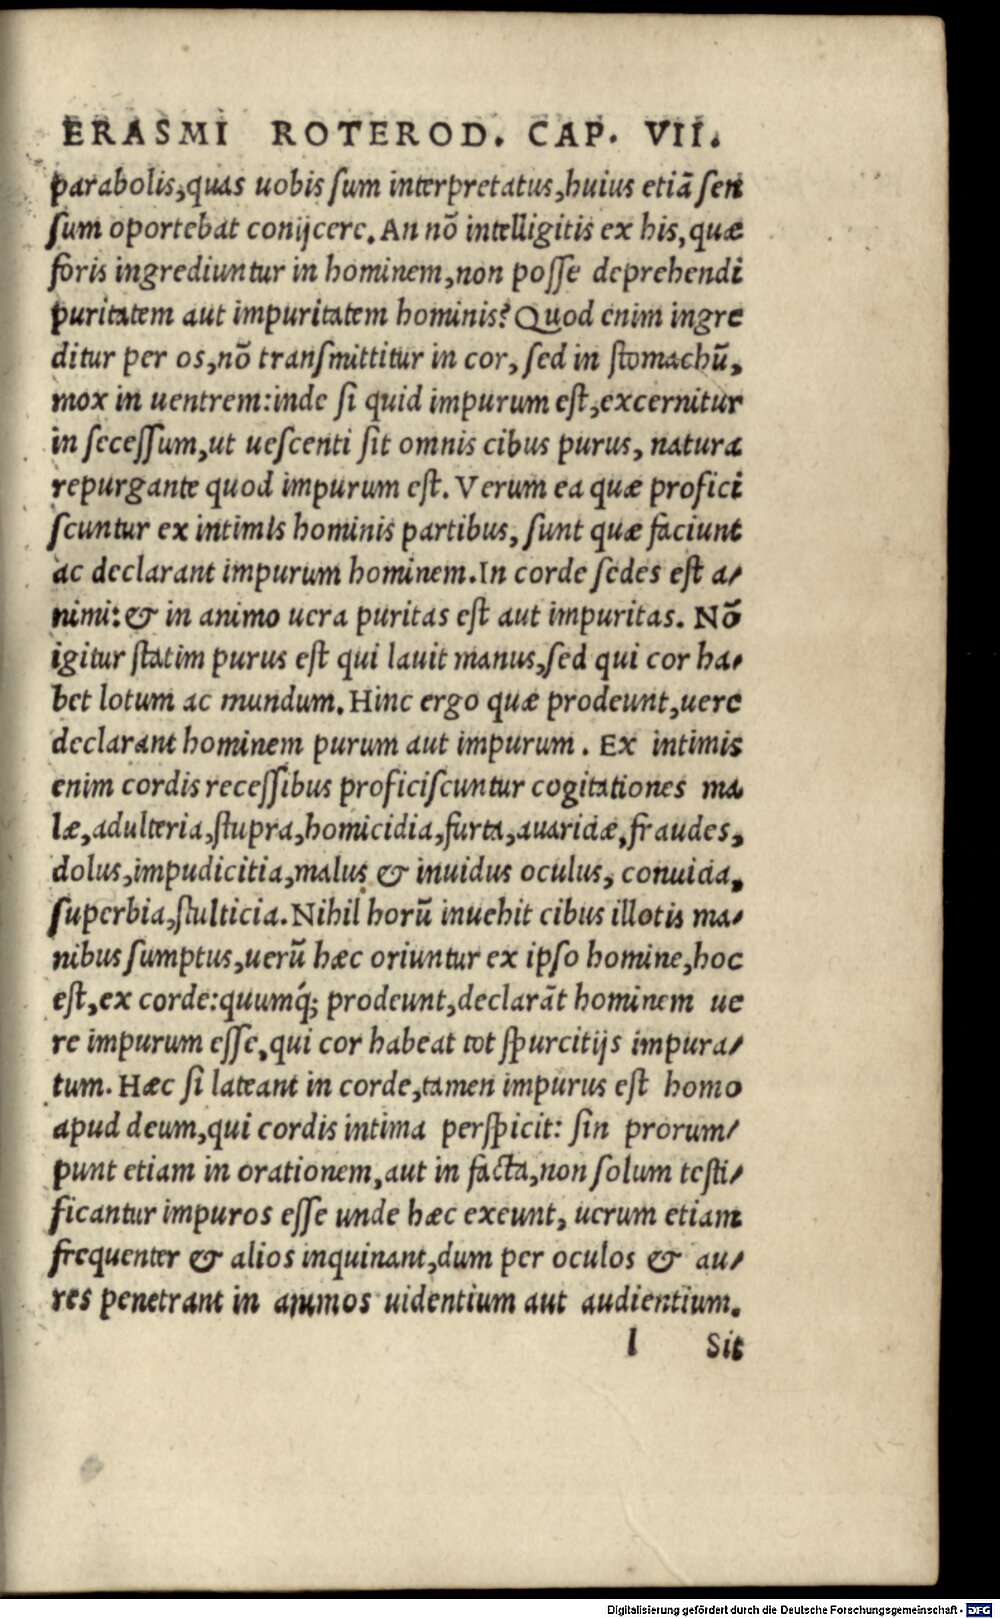 ERASMI ROTEROD. CAP. VII.
parabolis, quas uobis sum interpretatus, huius etiā sen
sum oportebat conijcere. An nō intelligitis ex his, quæ
foris ingrediuntur in hominem, non posse deprehendi
puritatem aut impuritatem hominis? Quod enim ingre
ditur per os, nō transmittitur in cor, sed in stomachū,
mox in uentrem: inde si quid impurum est, excernitur
in secessum, ut uescenti sit omnis cibus purus, natura
repurgante quod impurum est. Verum ea quæ profici
scuntur ex intimis hominis partibus, sunt quæ faciunt
ac declarant impurum hominem. In corde sedes est a-
nimi: & in animo uera puritas est aut impuritas. Nō
igitur statim purus est qui lauit manus, sed qui cor ha-
bet lotum ac mundum. Hinc ergo quæ prodeunt, uere
declarant hominem purum aut impurum. Ex intimis
enim cordis recessibus proficiscuntur cogitationes ma
læ, adulteria, stupra, homicidia, furta, auariciæ, fraudes,
dolus, impudicitia, malus & inuidus oculus, conuicia,
superbia, stulticia. Nihil horū inuehit cibus illotis ma-
nibus sumptus, uerū hæc oriuntur ex ipso homine, hoc
est, ex corde: quumq́; prodeunt, declarāt hominem ue
re impurum esse, qui cor habeat tot spurcitijs impura-
tum. Hæc si lateant in corde, tamen impurus est homo
apud deum, qui cordis intima perspicit: sin prorum-
punt etiam in orationem, aut in facta, non solum testi-
ficantur impuros esse unde hæc exeunt, uerum etiam
frequenter & alios inquinant, dum per oculos & au-
res penetrant in animos uidentium aut audientium.
I Sit
Digitalisierung gefördert durch die Deutsche Forschungsgemeinschaft - DFG